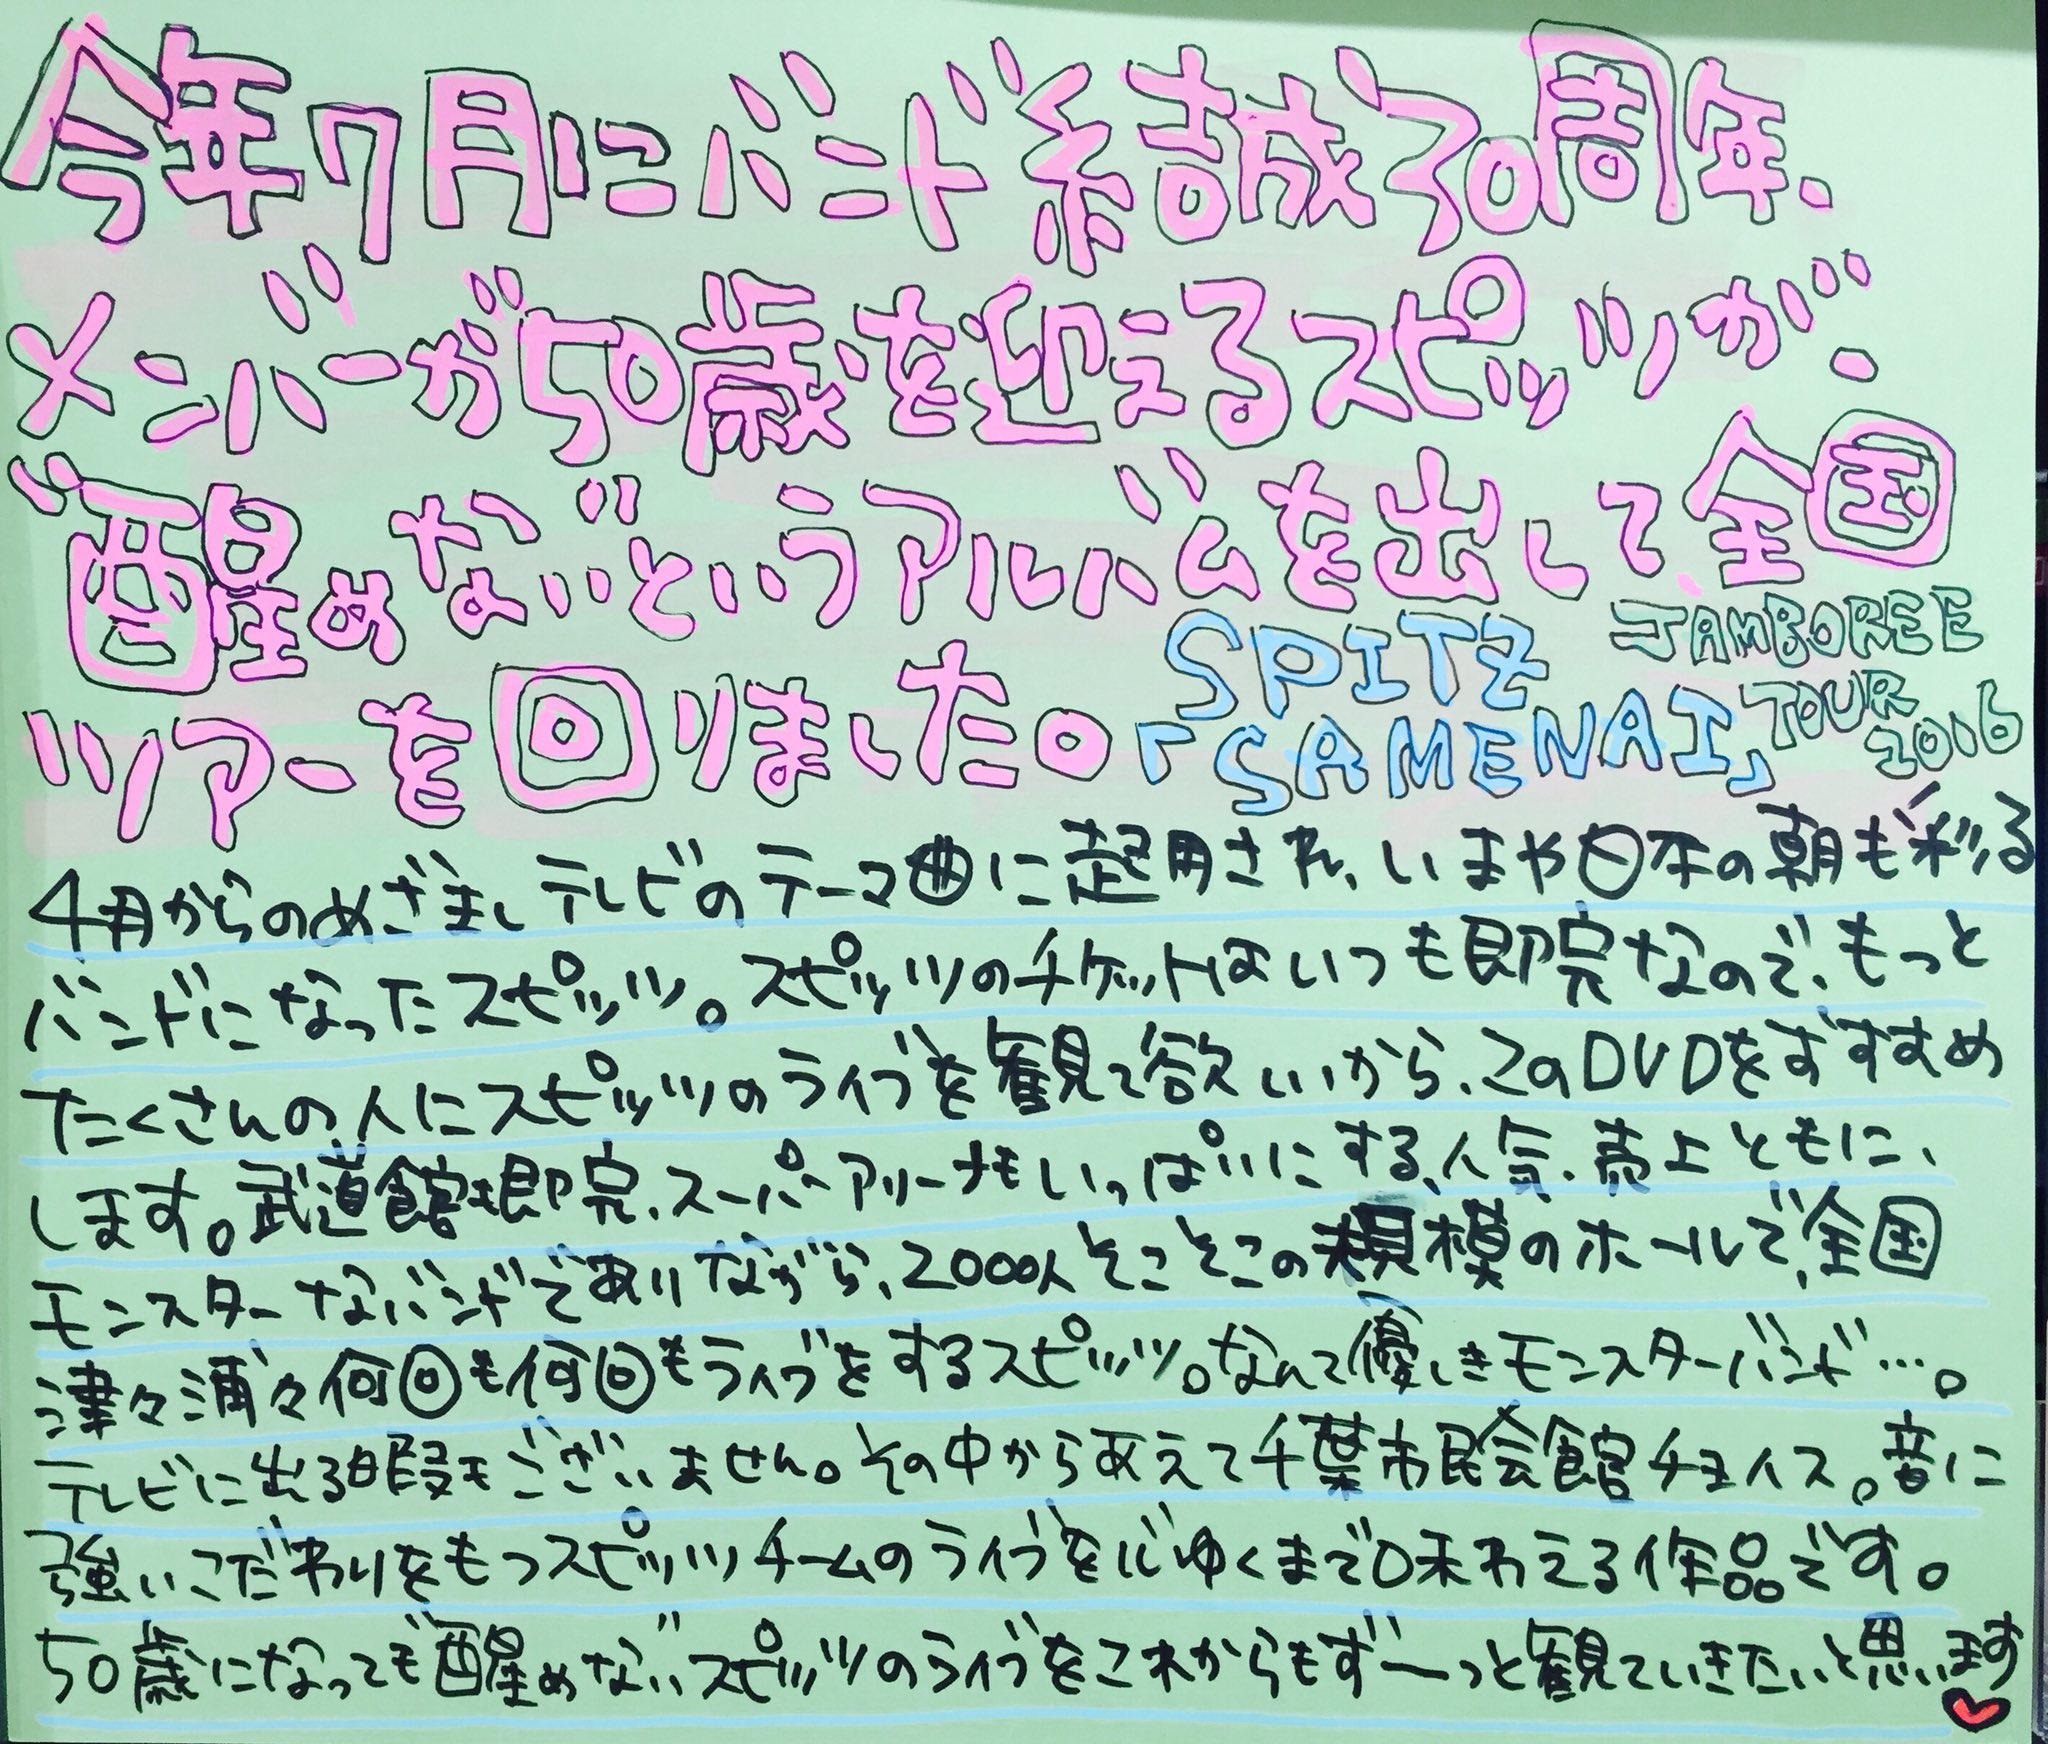 今年7月にバンド結誠30周年、
メンバーが50歳を迎えるスピッツが、
"醒めない"というアルバムを出して、全国
ツアーを回りました。SPITZ JAMBOREE
「SAMENAI」TOUR 2016
4月からのめざましテレビのテーマ曲に起用され、いまや日本の朝も彩る
バンドになったスピッツ。スピッツのチケットはいつも即完なので、もっと
たくさんの人にスピッツのライブを観て欲しいから、このDVDをおすすめ
します。武道館も即完、スーパーアリーナもいっぱいにする、人気、売上ともに、
モンスターなバンドでありながら、2000人そこそこの規模のホールで、全国
津々浦々何回も何回もライブをするスピッツ。なんて優しきモンスターバンド…。
テレビに出る暇もございません。その中からあえて千葉市民会館チョイス。音に
強いこだわりをもつスピッツチームのライブを心ゆくまで味わえる作品です。
50歳になっても"醒めない"スピッツのライブをこれからもず〜っと観ていきたいと思います